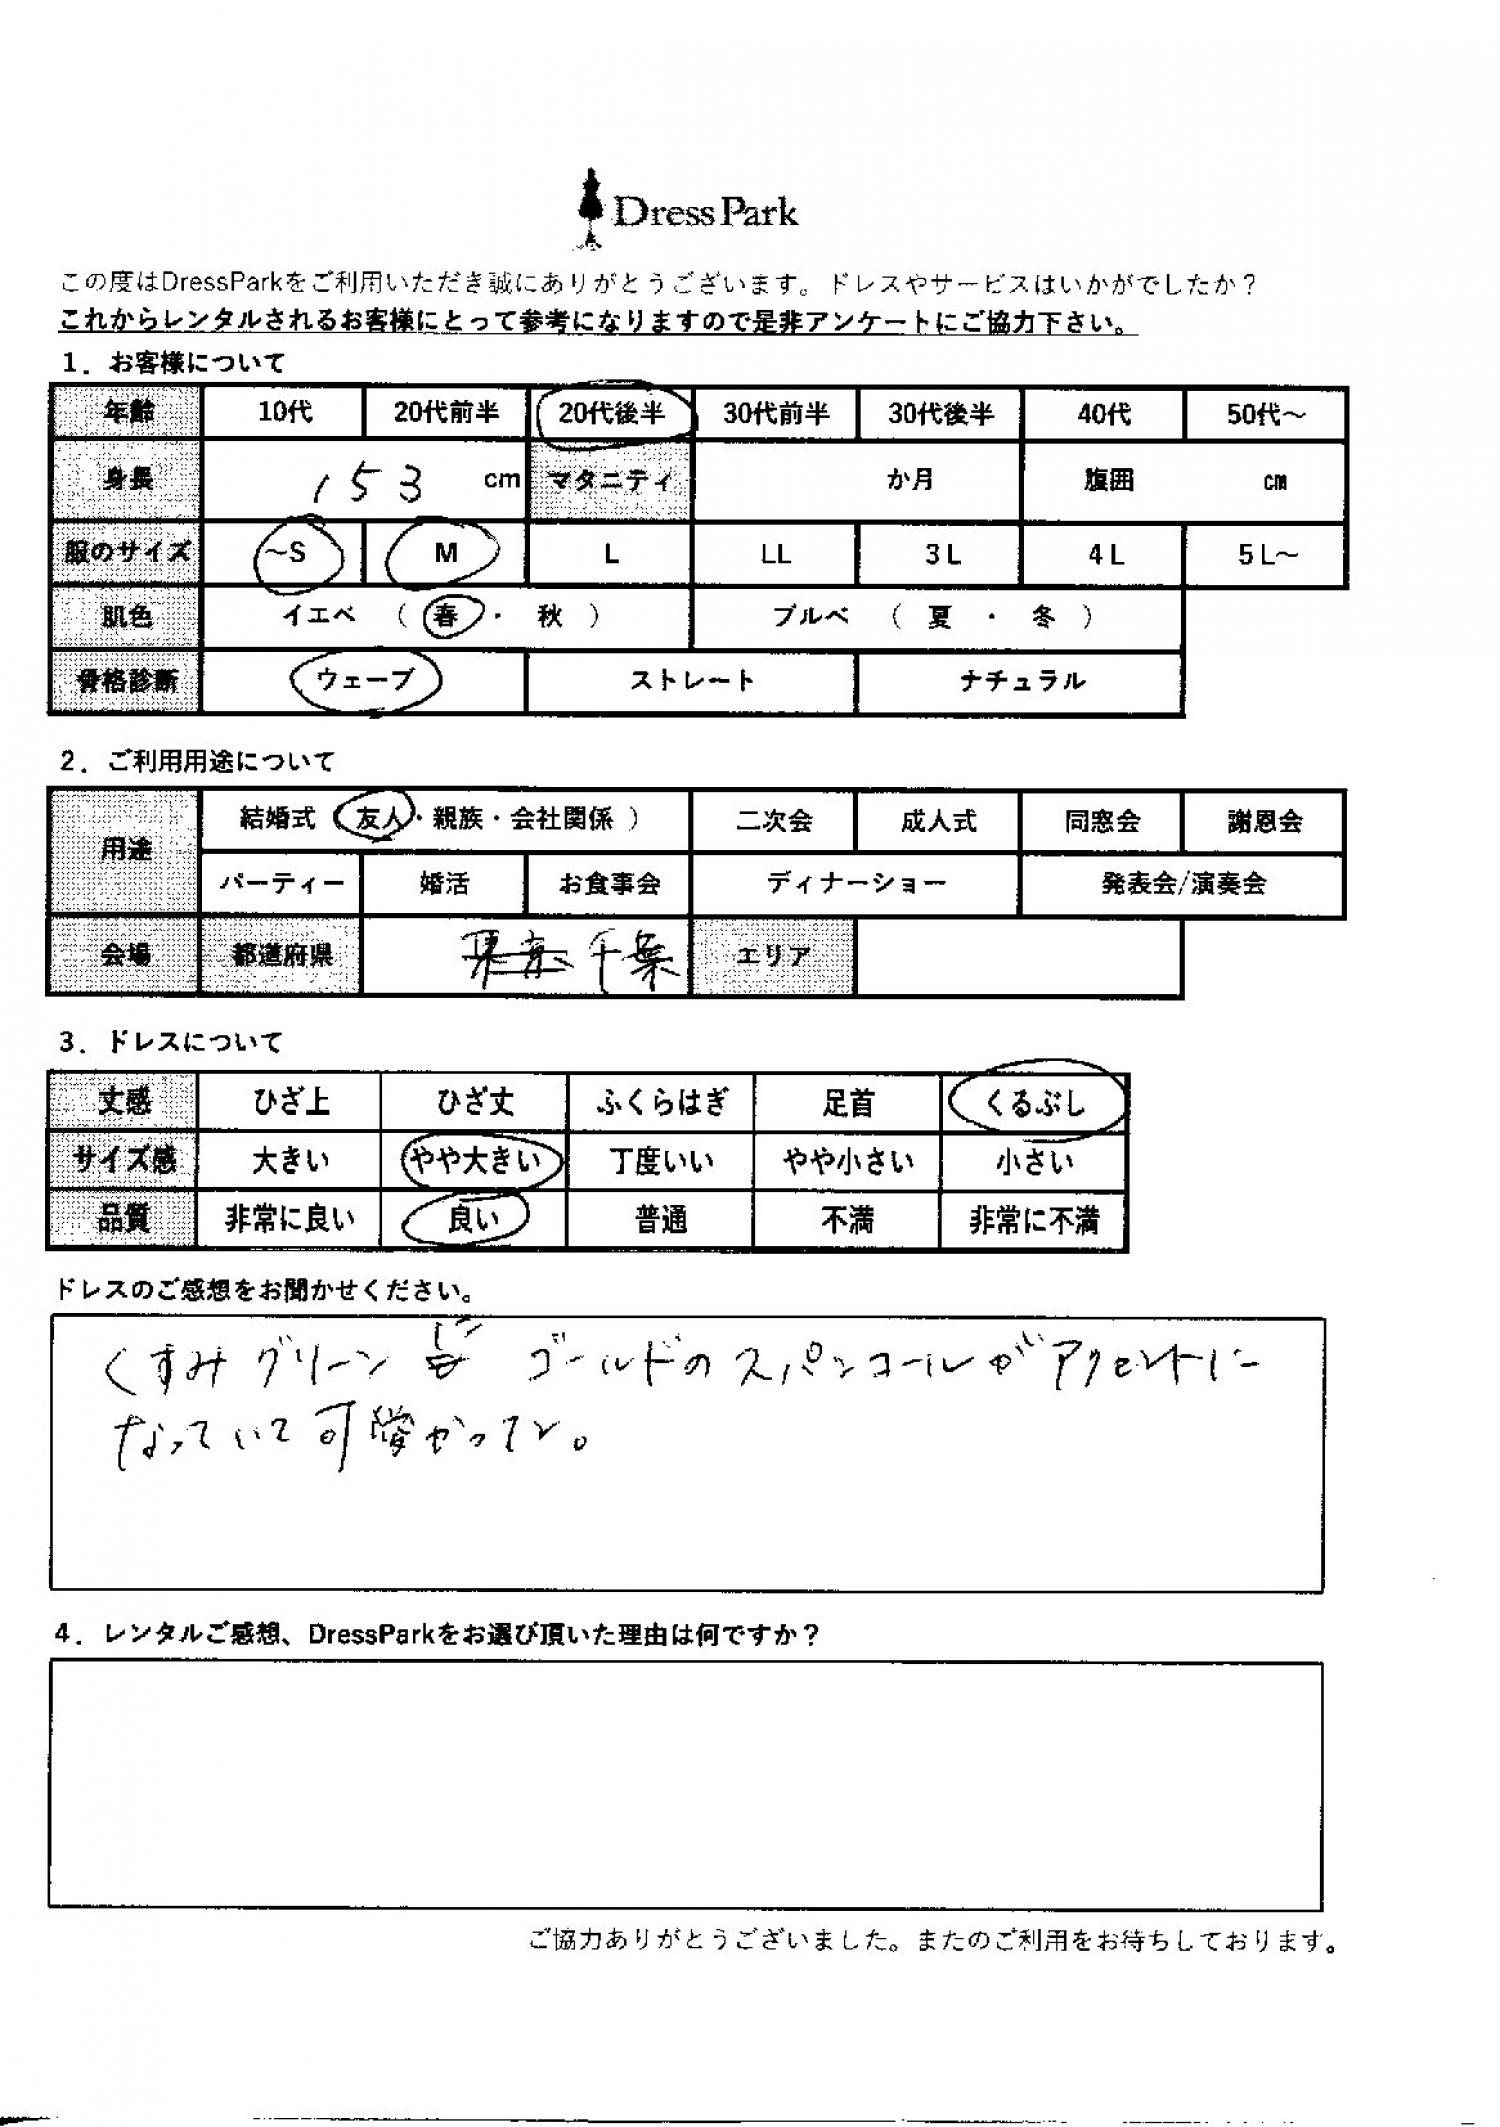 Dress Park
この度はDressParkをご利用いただき誠にありがとうございます。ドレスやサービスはいかがでしたか？
これからレンタルされるお客様にとって参考になりますので是非アンケートにご協力下さい。
1．お客様について
年齢 10代 20代前半 20代後半 30代前半 30代後半 40代 50代～
身長 153 cm マタニティ か月 腹囲 cm
服のサイズ ～S M L LL 3L 4L 5L～
肌色 イエベ （ 春 ・ 秋 ） ブルベ （ 夏 ・ 冬 ）
骨格診断 ウェーブ ストレート ナチュラル
2．ご利用用途について
用途 結婚式（友人・親族・会社関係） 二次会 成人式 同窓会 謝恩会
パーティー 婚活 お食事会 ディナーショー 発表会/演奏会
会場 都道府県 東京 千葉 エリア
3．ドレスについて
丈感 ひざ上 ひざ丈 ふくらはぎ 足首 くるぶし
サイズ感 大きい やや大きい 丁度いい やや小さい 小さい
品質 非常に良い 良い 普通 不満 非常に不満
ドレスのご感想をお聞かせください。
くすみグリーンに ゴールドのスパンコールがアクセントに
なっていて可愛かった。
4．レンタルご感想、DressParkをお選び頂いた理由は何ですか？
ご協力ありがとうございました。またのご利用をお待ちしております。